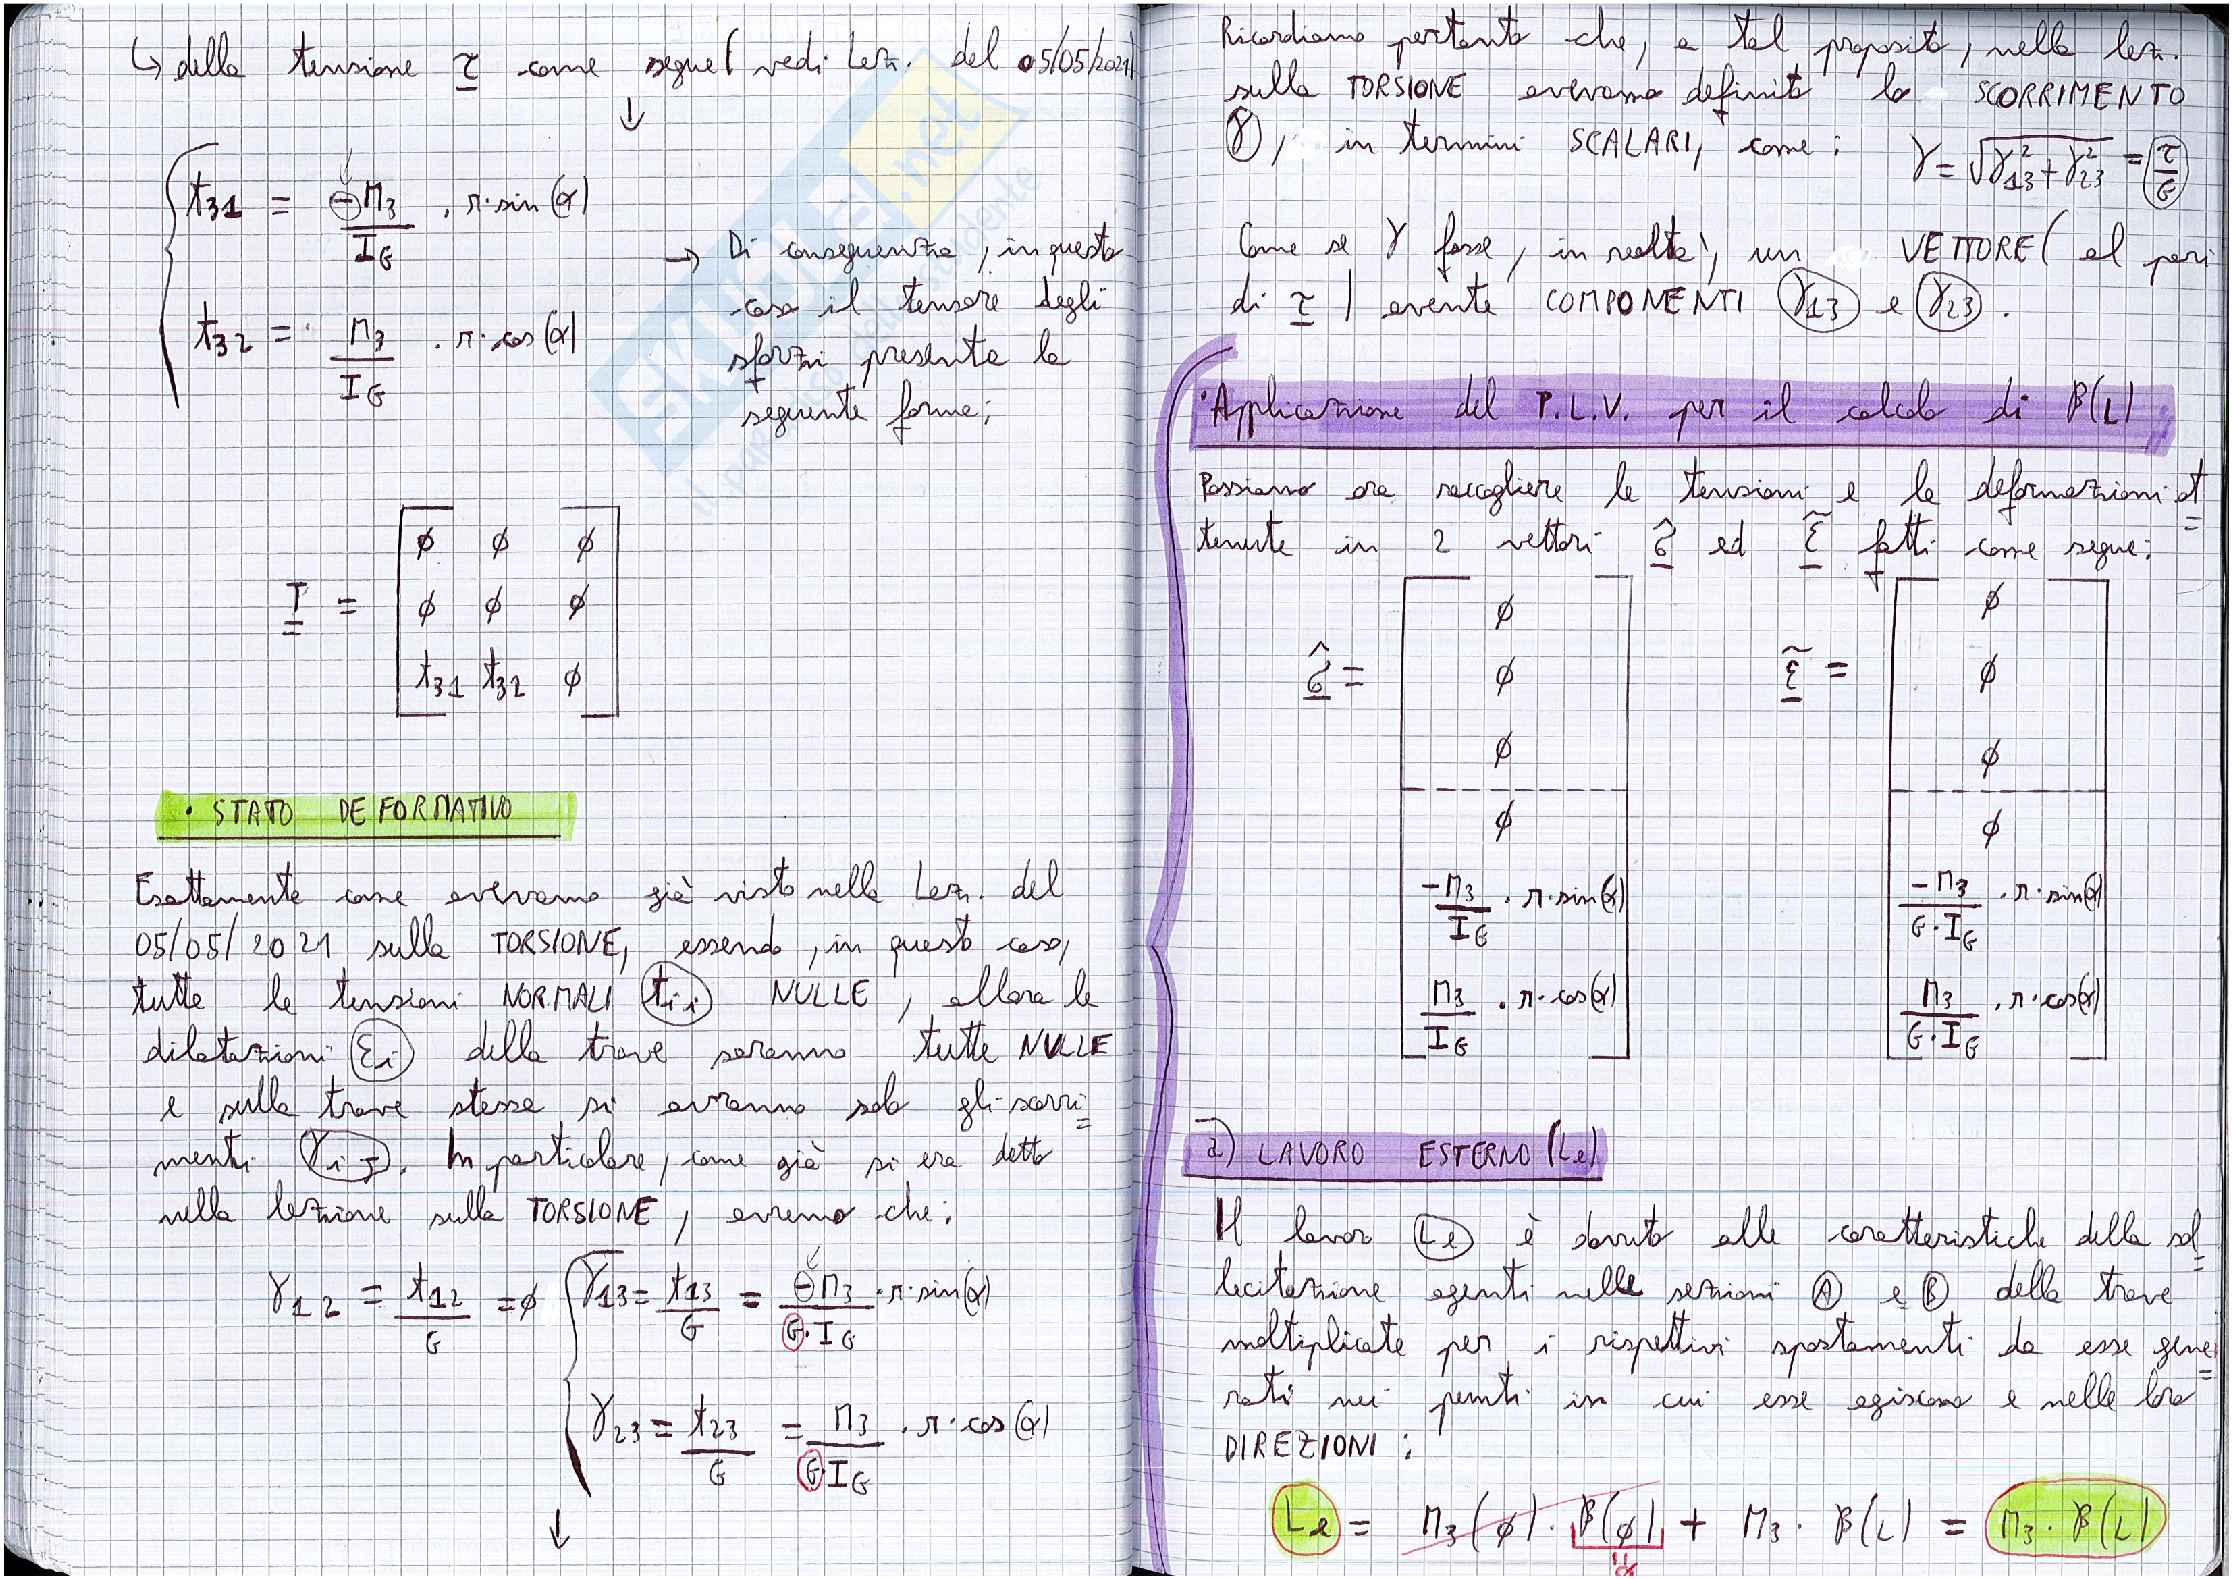 ↳ della tensione τ come segue (vedi Lez. del 05/05/2021)
↓
t31 = -M3/IG · r·sin(α)
t32 = M3/IG · r·cos(α)
→ Di conseguenza, in questo
caso il tensore degli
sforzi presenta la
seguente forma:
T = [ø ø ø
ø ø ø
t31 t32 ø]
• STATO DEFORMATIVO
Esattamente come avevamo già visto nella Lez. del
05/05/2021 sulla TORSIONE, essendo, in questo caso,
tutte le tensioni NORMALI tii NULLE, allora le
dilatazioni εi della trave saranno tutte NULLE
e sulla trave stessa si avranno solo gli scorri=
menti γij. In particolare, come già si era detto
nella lezione sulla TORSIONE, avremo che:
γ12 = t12/G = ø
γ13 = t13/G = -M3/(G·IG) · r·sin(α)
γ23 = t23/G = M3/(G·IG) · r·cos(α)
↓
Ricordiamo pertanto che, a tal proposito, nella lez.
sulla TORSIONE avevamo definito lo SCORRIMENTO
γ, in termini SCALARI, come: γ = √(γ²13 + γ²23) = τ/G
Come se γ fosse, in realtà, un VETTORE (al pari
di τ) avente COMPONENTI γ13 e γ23.
• Applicazione del P.L.V. per il calcolo di β(L)
Possiamo ora raccogliere le tensioni e le deformazioni ot=
tenute in 2 vettori σ̂ ed ε̃ fatti come segue:
σ̂ = [ø
ø
ø
ø
-M3/IG · r·sin(α)
M3/IG · r·cos(α)]
ε̃ = [ø
ø
ø
ø
-M3/(G·IG) · r·sin(α)
M3/(G·IG) · r·cos(α)]
a) LAVORO ESTERNO (Le)
Il lavoro Le è dovuto alle caratteristiche della sol=
lecitazione agenti nelle sezioni A e B della trave
moltiplicate per i rispettivi spostamenti da esse gene=
rati nei punti in cui esse agiscono e nelle loro
DIREZIONI:
Le = M3(ø) · β(ø) + M3 · β(L) = M3 · β(L)
SKUOLA.net